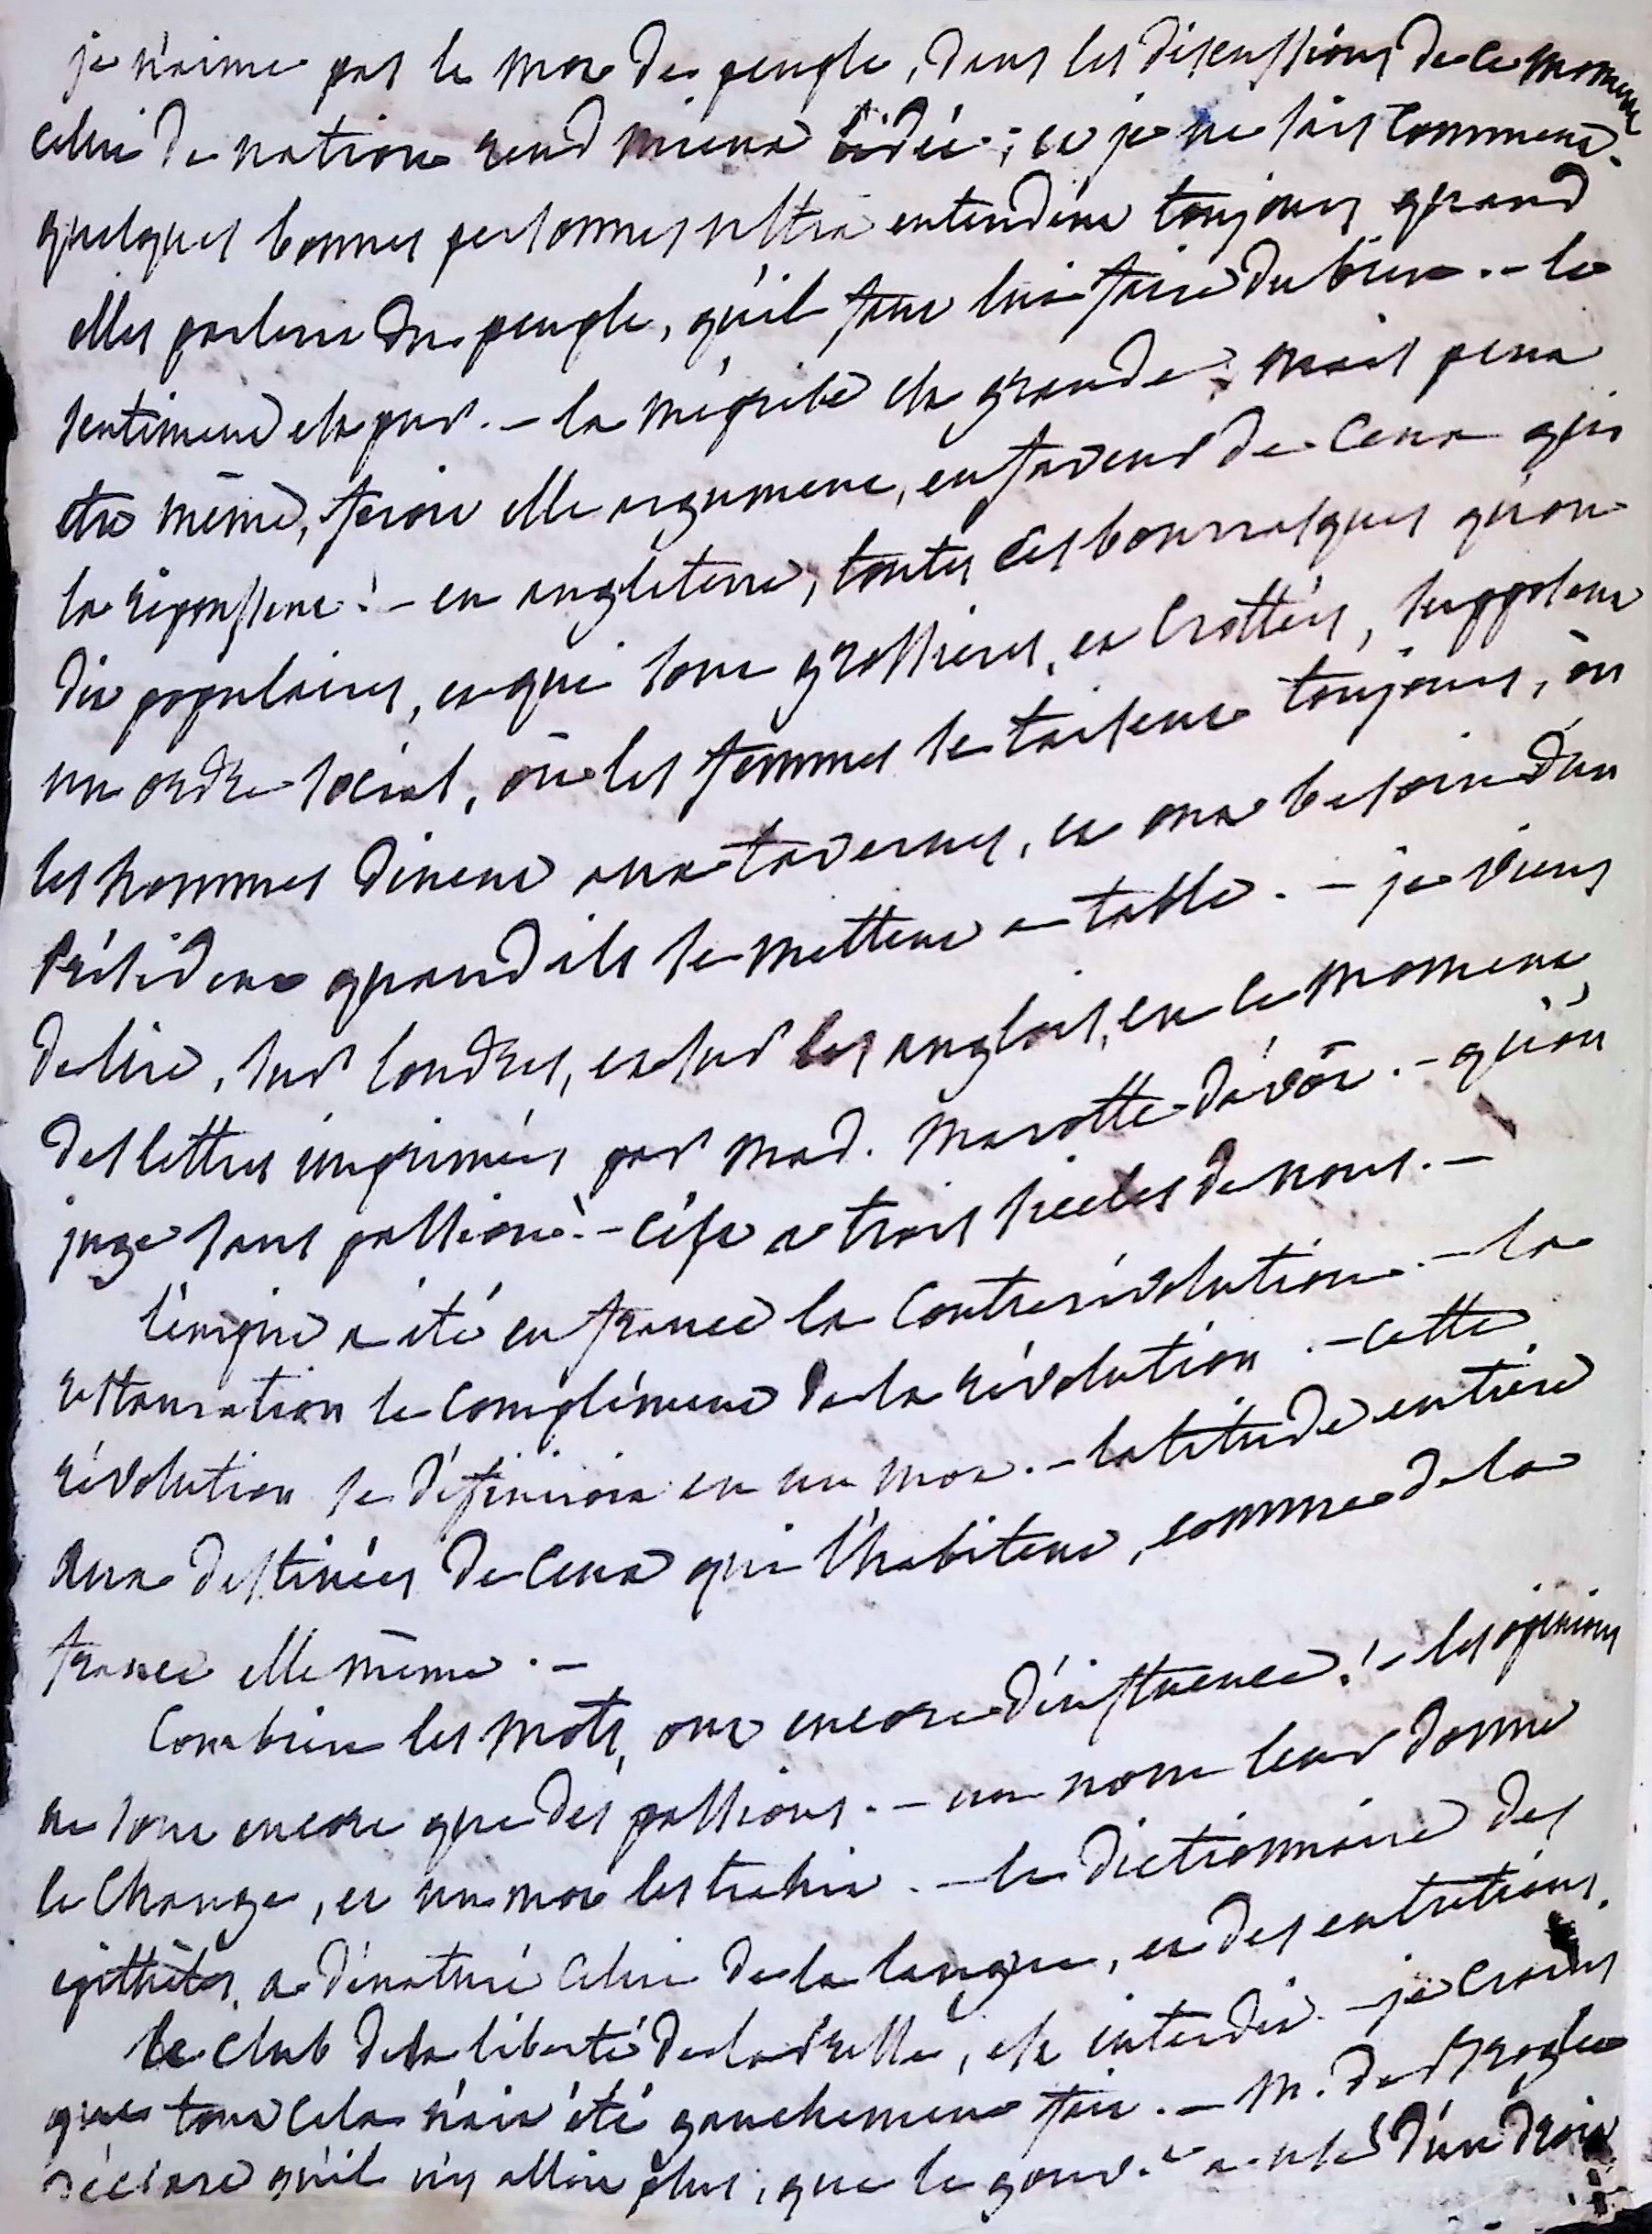 je n'aime pas le mot de peuple, dans les discussions de ce moment
celui de nation rend mieux l'idée ; et je ne sais comment
quelques bonnes personnes ultra entendent toujours quand
elles parlent du peuple, qu'il faut lui faire du bien. – le
sentiment est pur. – la méprise est grande ; mais peut
etre même, feroit elle argument, en faveur de ceux qui
la repoussent ! – en angleterre, toutes ces bourrasques qu'on
dit populaires, et qui sont grossieres, et crottées, supposent
un ordre social, où les femmes se taisent toujours, où
les hommes dinent aux tavernes, et ont besoin d'un
président quand ils se mettent a table. – je viens
de lire, sur londres, et sur les anglois, en ce moment
des lettres imprimées par mad. – qu'on
juge sans passion ! – c'est a trois siecles de nous. –
l'empire a été en france la contrerévolution. – la
restauration le complément de la révolution. – cette
révolution se définiroit en un mot. – latitude entiere
aux destinées de ceux qui l'habitent, comme de la
france elle même. –
Combien les mots, ont encore d'influence ! – les opinions
ne sont encore que des passions. – un nom leur donne
le change, et un mot les trahit. – le dictionnaire des
epithètes, a dénaturé celui de la langue, et des entretiens.
le club de la liberté de la presse, est interdit. – je crains
que tout cela n'ait été gauchement fait. – M. de Broglie
déclare qu'il n'y alloit plus, que le gouv.t a usé d'un droit